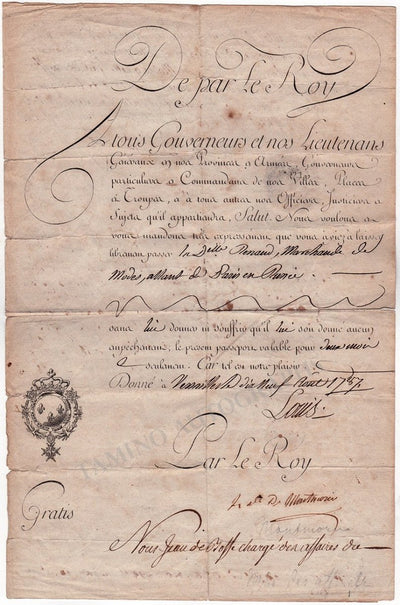 De par le Roy
A tous Gouverneurs et nos Lieutenans
Généraux en nos Provinces & Armées, Gouverneurs
particuliers & Commandans de nos Villes, Places
& Troupes, & à tous autres nos Officiers, Justiciers &
Sujets qu'il appartiendra, Salut. Nous voulons &
vous mandons très expressément que vous ayiez à laisser
librement passer la Dlle Renaud, Marchande de
Modes, allant de Paris en Russie.
sans lui donner ni souffrir qu'il lui soit donné aucun
empêchement; le présent passeport valable pour deux mois
seulement. Car tel est notre plaisir.
Donné à Versailles le dix neuf Août 1787
Louis
Par le Roy
Le cte De Montmorin
Gratis
Nous Jean de chargé des affaires de
TAMINO AUTOGRAPHS